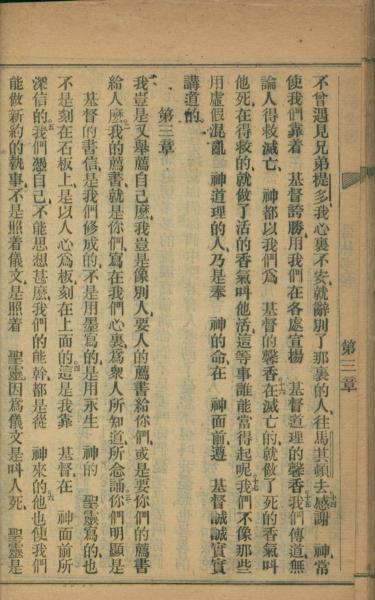 第三章
不曾遇見兄弟提多我心裏不安就辭別了那裏的人往馬其頓去感謝　神常
使我們靠着　基督誇勝用我們在各處宣揚　基督道理的馨香我們傳道無
論人得救滅亡　神都以我們爲　基督的馨香在滅亡的就做了死的香氣叫
他死在得救的就做了活的香氣叫他活這等事誰能當得起呢我們不像那些
用虛假混亂　神道理的人乃是奉　神的命在　神面前遵　基督誠誠實實
講道的
第三章
我豈是又舉薦自己麽我豈是像別人要人的薦書給你們或是要你們的薦書
給人麽我的薦書就是你們寫在我們心裏爲衆人所知道所念誦你們明顯是
基督的書信是我們修成的不是用墨寫的是用永生　神的　聖靈寫的也
不是刻在石板上是以人心爲板刻在上面的這是我靠　基督在　神面前所
深信的我們憑自己不能思想甚麽我們的能幹都是從　神來的他也使我們
能做新約的執事不是照着儀文是照着　聖靈因爲儀文是叫人死　聖靈是